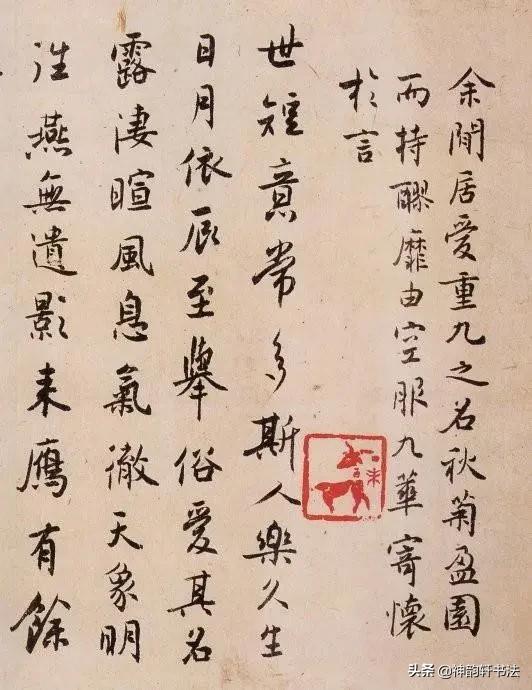 余閒居愛重九之名秋菊盈園
而持醪靡由空服九華寄懷
於言
世短意常多斯人樂久生
日月依辰至舉俗愛其名
露淒暄風息氣徹天象明
往燕無遺影来鴈有餘
头条 @神韵轩书法